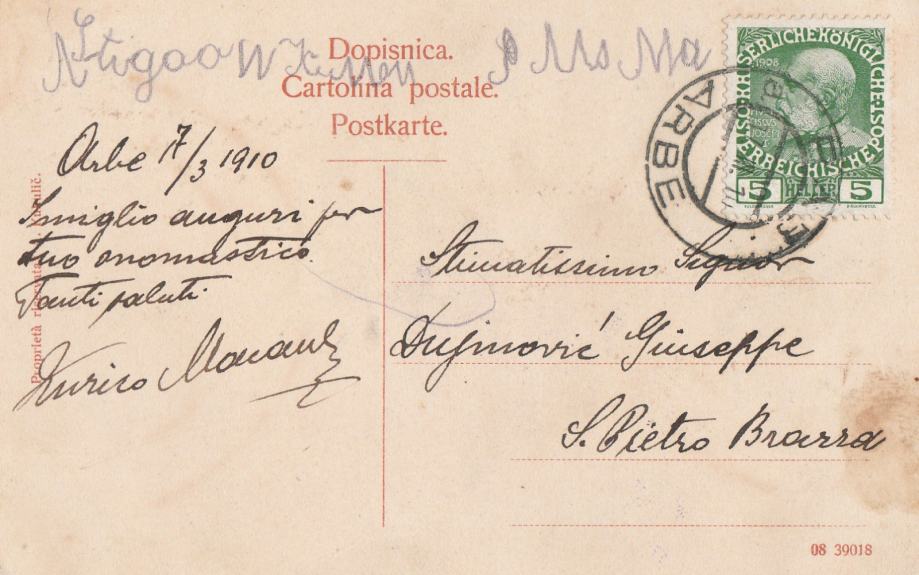 Dopisnica.
Cartolina postale.
Postkarte.
Arbe 17/3 1910
Smiglio auguri per
tuo onomastico.
Tanti saluti
Enrico
Stimatissimo Signor
Dujmović Giuseppe
S. Pietro Brazza
1908
KAISERLICHE KÖNIGLICHE
ÖSTERREICHISCHE POST
5 HELLER 5
ARBE
Proprietà
08 39018